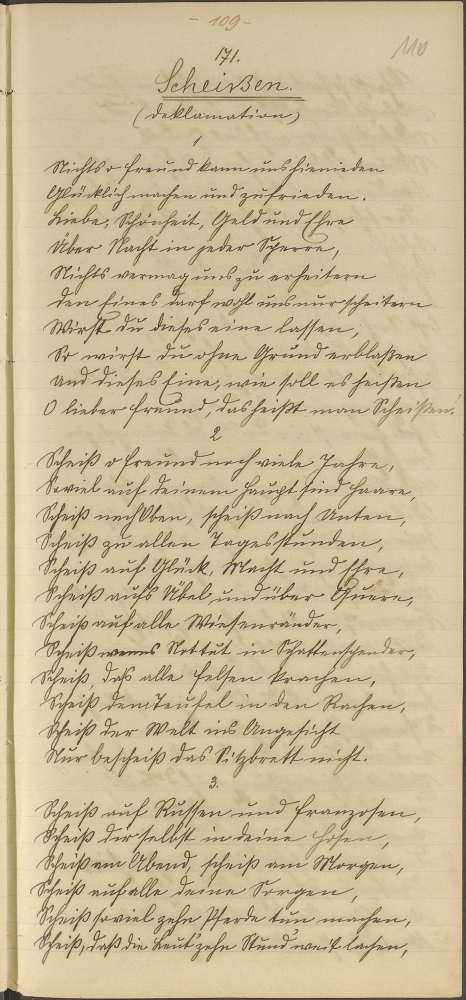 - 109 -
110
171.
Scheißen.
(Deklamation)
1
Nichts o Freund kann uns hienieden
Glücklich machen und zufrieden.
Liebe, Schönheit, Geld und Ehre
Über Nacht in jeder
Nichts vermag uns zu erheitern
Den Eines darf wohl uns nur scheitern
Wirst du dieses eine lassen,
So wirst du ohne Grund erblaßen
Und dieses Eine, wie soll es heißen
O lieber Freund, das heißt man Scheißen!
2
Scheiß o Freund noch viele Jahre,
Soviel auf deinem Haupt sind Haare,
Scheiß nach Oben, scheiß nach Unten,
Scheiß zu allen Tagesstunden,
Scheiß auf Glück, Macht und Ehre,
Scheiß aufs Übel, und über Quere,
Scheiß auf alle Wiesenränder,
Scheiß wenns Nottut in Schattenspender,
Scheiß, daß alle Felsen krachen,
Scheiß dem Teufel in den Rachen,
Scheiß der Welt ins Angesicht
Nur bescheiß das Sitzbrett nicht.
3.
Scheiß auf Russen und Franzosen,
Scheiß dir selbst in deine Hosen,
Scheiß am Abend, scheiß am Morgen,
Scheiß auf alle deine Sorgen,
Scheiß soviel zehn Pferde tun machen,
Scheiß, daß die Leut' zehn Stund weit lachen,